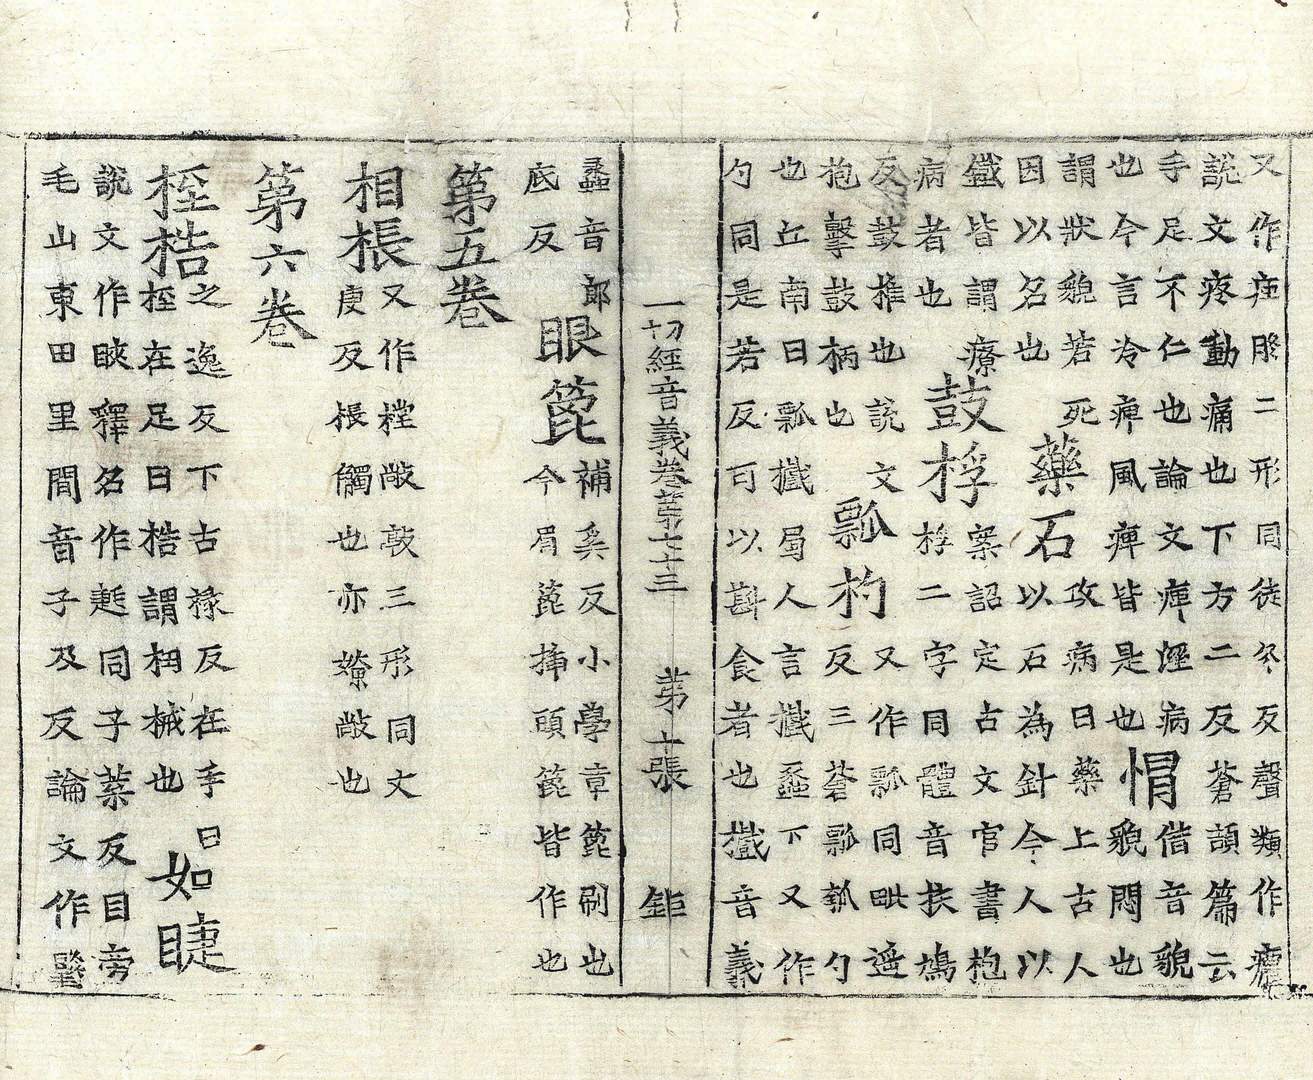 又作疰胗二形同徒冬反聲類作癑
說文疼動痛也下方二反蒼頡篇云
手足不仁也論文痺溼病
也今言冷痺風痺皆是也
偕音貌
貌悶也
謂狀貌若死
因以名也
藥石
攻病曰藥上古人
以石為針今人以
鐵皆謂療
病者也
鼓桴
案詔定古文官書枹
桴二字同體音扶鳩
反鼓推也說文
抱擊鼓柄也
瓢杓
又作瓢同毗遥
反三蒼瓢瓠勺
也江南曰瓢㰕蜀人言㰕蠡下又作
勺同是若反可以斟食者也㰕音義
一切經音義卷第七十三 第十張 鉅
蠡音郎
底反
眼篦
補奚反小學章篦刷也
今眉篦揷頭篦皆作也
第五卷
相棖
又作樘敞敦三形同丈
庚反棖觸也亦嫽敞也
第六卷
桎梏
之逸反下古祿反在手曰
桎在足曰梏謂杻械也
如睫
說文作䀹釋名作毽同子葉反目旁
毛山東田里間音子及反論文作